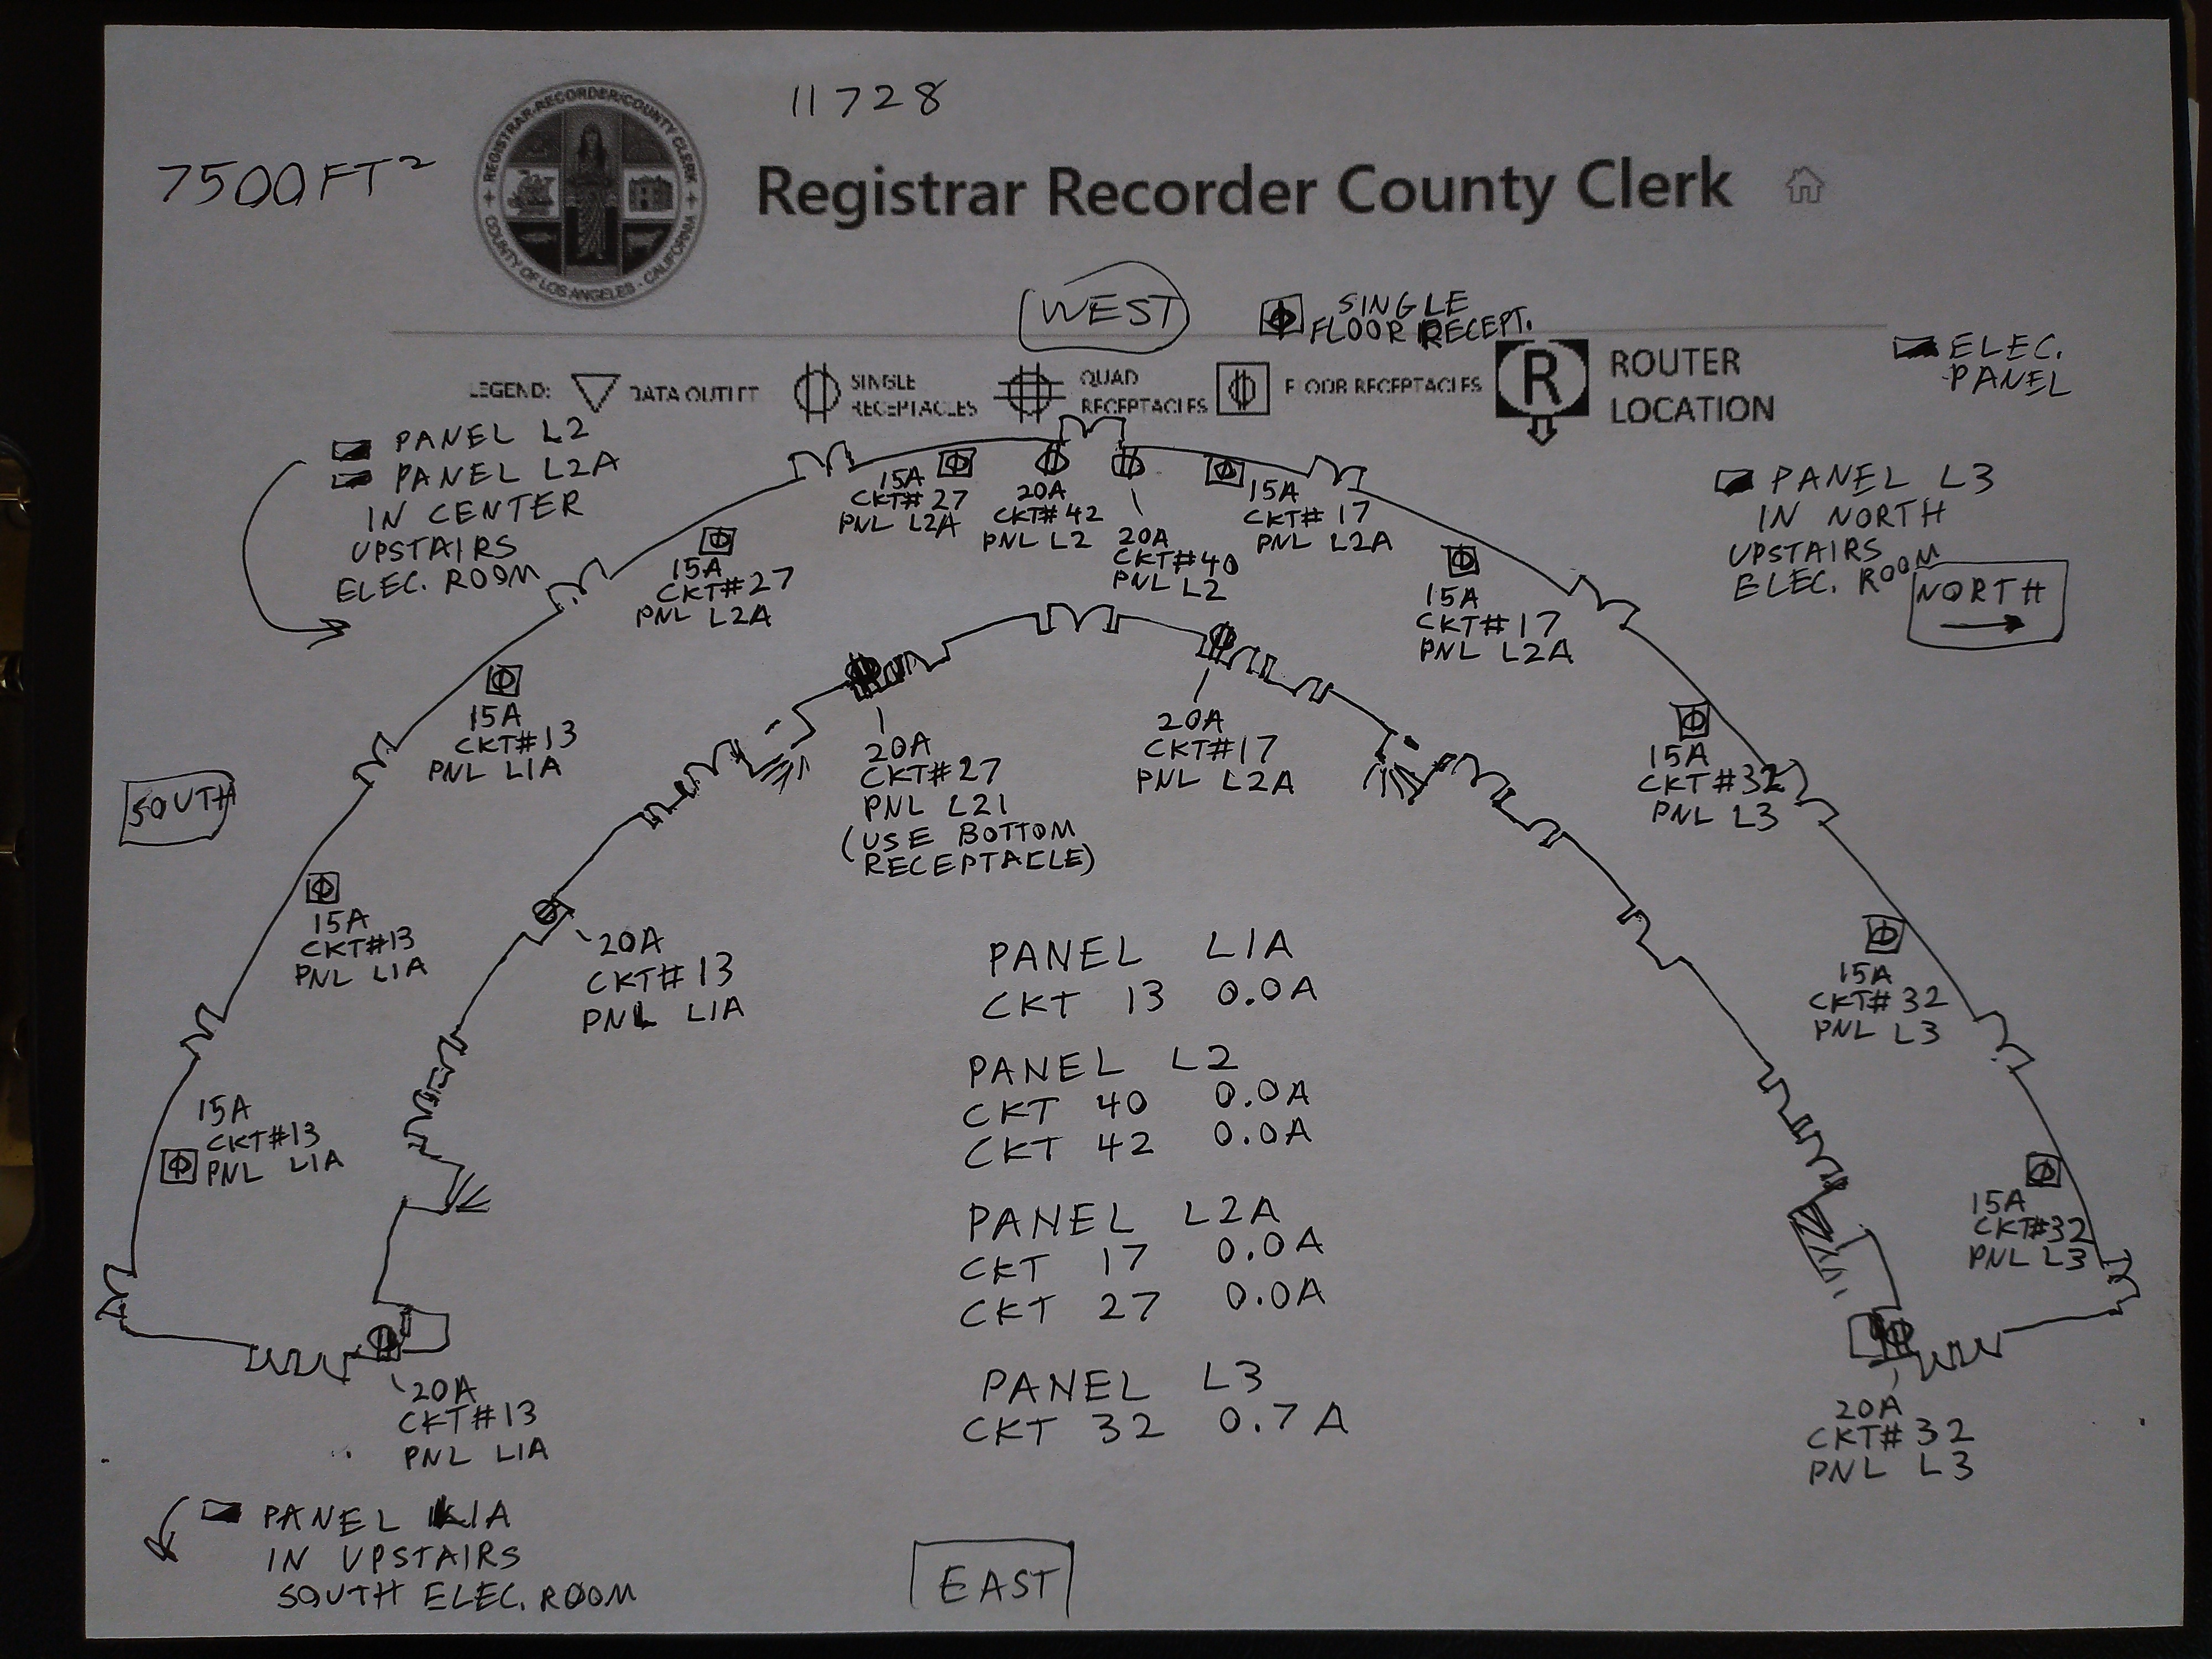 11728
7500FT²
REGISTRAR-RECORDER/COUNTY CLERK
COUNTY OF LOS ANGELES - CALIFORNIA
Registrar Recorder County Clerk
WEST
SINGLE
FLOOR RECEPT.
LEGEND:
DATA OUTLET
SINGLE
RECEPTACLES
QUAD
RECEPTACLES
FLOOR RECEPTACLES
R
ROUTER
LOCATION
ELEC.
PANEL
PANEL L2
PANEL L2A
IN CENTER
UPSTAIRS
ELEC. ROOM
PANEL L3
IN NORTH
UPSTAIRS
ELEC. ROOM
NORTH
15A
CKT#27
PNL L2A
20A
CKT#42
PNL L2
20A
CKT#40
PNL L2
15A
CKT#17
PNL L2A
15A
CKT#27
PNL L2A
15A
CKT#17
PNL L2A
15A
CKT#13
PNL L1A
20A
CKT#27
PNL L21
(USE BOTTOM
RECEPTACLE)
20A
CKT#17
PNL L2A
15A
CKT#32
PNL L3
SOUTH
15A
CKT#13
PNL L1A
20A
CKT#13
PNL L1A
15A
CKT#32
PNL L3
PANEL L1A
CKT 13 0.0A
PANEL L2
CKT 40 0.0A
CKT 42 0.0A
PANEL L2A
CKT 17 0.0A
CKT 27 0.0A
PANEL L3
CKT 32 0.7A
15A
CKT#13
PNL L1A
15A
CKT#32
PNL L3
20A
CKT#13
PNL L1A
20A
CKT#32
PNL L3
PANEL L1A
IN UPSTAIRS
SOUTH ELEC. ROOM
EAST